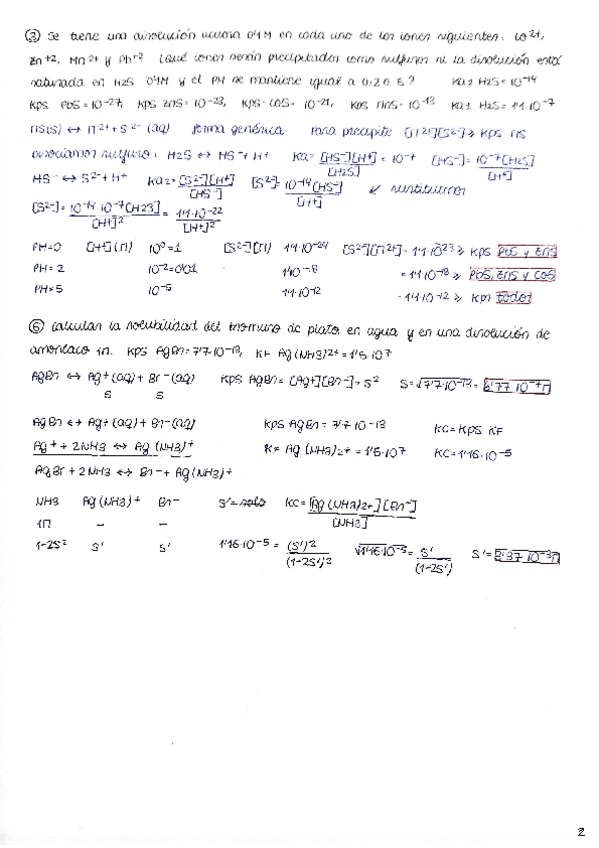 ③ Se tiene una disolución acuosa 0'1M en cada uno de los iones siguientes: Co²⁺,
Zn⁺², Mn²⁺ y Pb⁺² ¿Qué iones serán precipitados como sulfuros si la disolución está
saturada en H2S 0'1M y el PH se mantiene igual a 0, 2 o 5? Ka2 H2S = 10⁻¹⁴
Kps PbS = 10⁻²⁷, Kps ZnS = 10⁻²³, Kps CoS = 10⁻²¹, Kps MnS = 10⁻¹³ Ka1 H2S = 1'1·10⁻⁷
MS(s) ↔ M²⁺ + S²⁻ (aq) forma genérica Para precipite [M²⁺][S²⁻] ≥ Kps MS
disociamos sulfuro: H2S ↔ HS⁻ + H⁺ Ka = [HS⁻][H⁺]/[H2S] = 10⁻⁷ [HS⁻] = 10⁻⁷[H2S]/[H⁺]
HS⁻ ↔ S²⁻ + H⁺ Ka2 = [S²⁻][H⁺]/[HS⁻] [S²⁻] = 10⁻¹⁴[HS⁻]/[H⁺] ↙ sustituimos
[S²⁻] = 10⁻¹⁴ 10⁻⁷ [H2S]/[H⁺]² = 1'1·10⁻²²/[H⁺]²
PH=0 [H⁺] (M) 10⁰ = 1 [S²⁻](M) [S²⁻][M²⁺] = 1'1·10⁻²³ ≥ Kps PbS y ZnS
PH = 2 10⁻² = 0'01 = 1'1·10⁻¹⁹ ≥ PbS, ZnS y CoS
PH = 5 10⁻⁵ 1'1·10⁻¹² = 1'1·10⁻¹² ≥ Kps todos
⑥ Calcular la solubilidad del bromuro de plata en agua y en una disolución de
amoniaco 1M. Kps AgBr = 7'7·10⁻¹³, Kf Ag(NH3)2⁺ = 1'5·10⁷
AgBr ↔ Ag⁺(aq) + Br⁻(aq) Kps AgBr = [Ag⁺][Br⁻] = S² S = √7'7·10⁻¹³ = 8'77·10⁻⁷M
S S
AgBr ↔ Ag⁺(aq) + Br⁻(aq) Kps AgBr = 7'7·10⁻¹³ Kc = Kps Kf
Ag⁺ + 2NH3 ↔ Ag(NH3)⁺ K = Ag(NH3)2⁺ = 1'5·10⁷ Kc = 1'16·10⁻⁵
AgBr + 2NH3 ↔ Br⁻ + Ag(NH3)⁺
NH3 Ag(NH3)⁺ Br⁻ Kc = [Ag(NH3)2⁺][Br⁻]/[NH3]
1M – –
1-2S² S' S' 1'16·10⁻⁵ = (S')²/(1-2S')² √1'16·10⁻⁵ = S'/(1-2S') S' = 3'37·10⁻³M
2